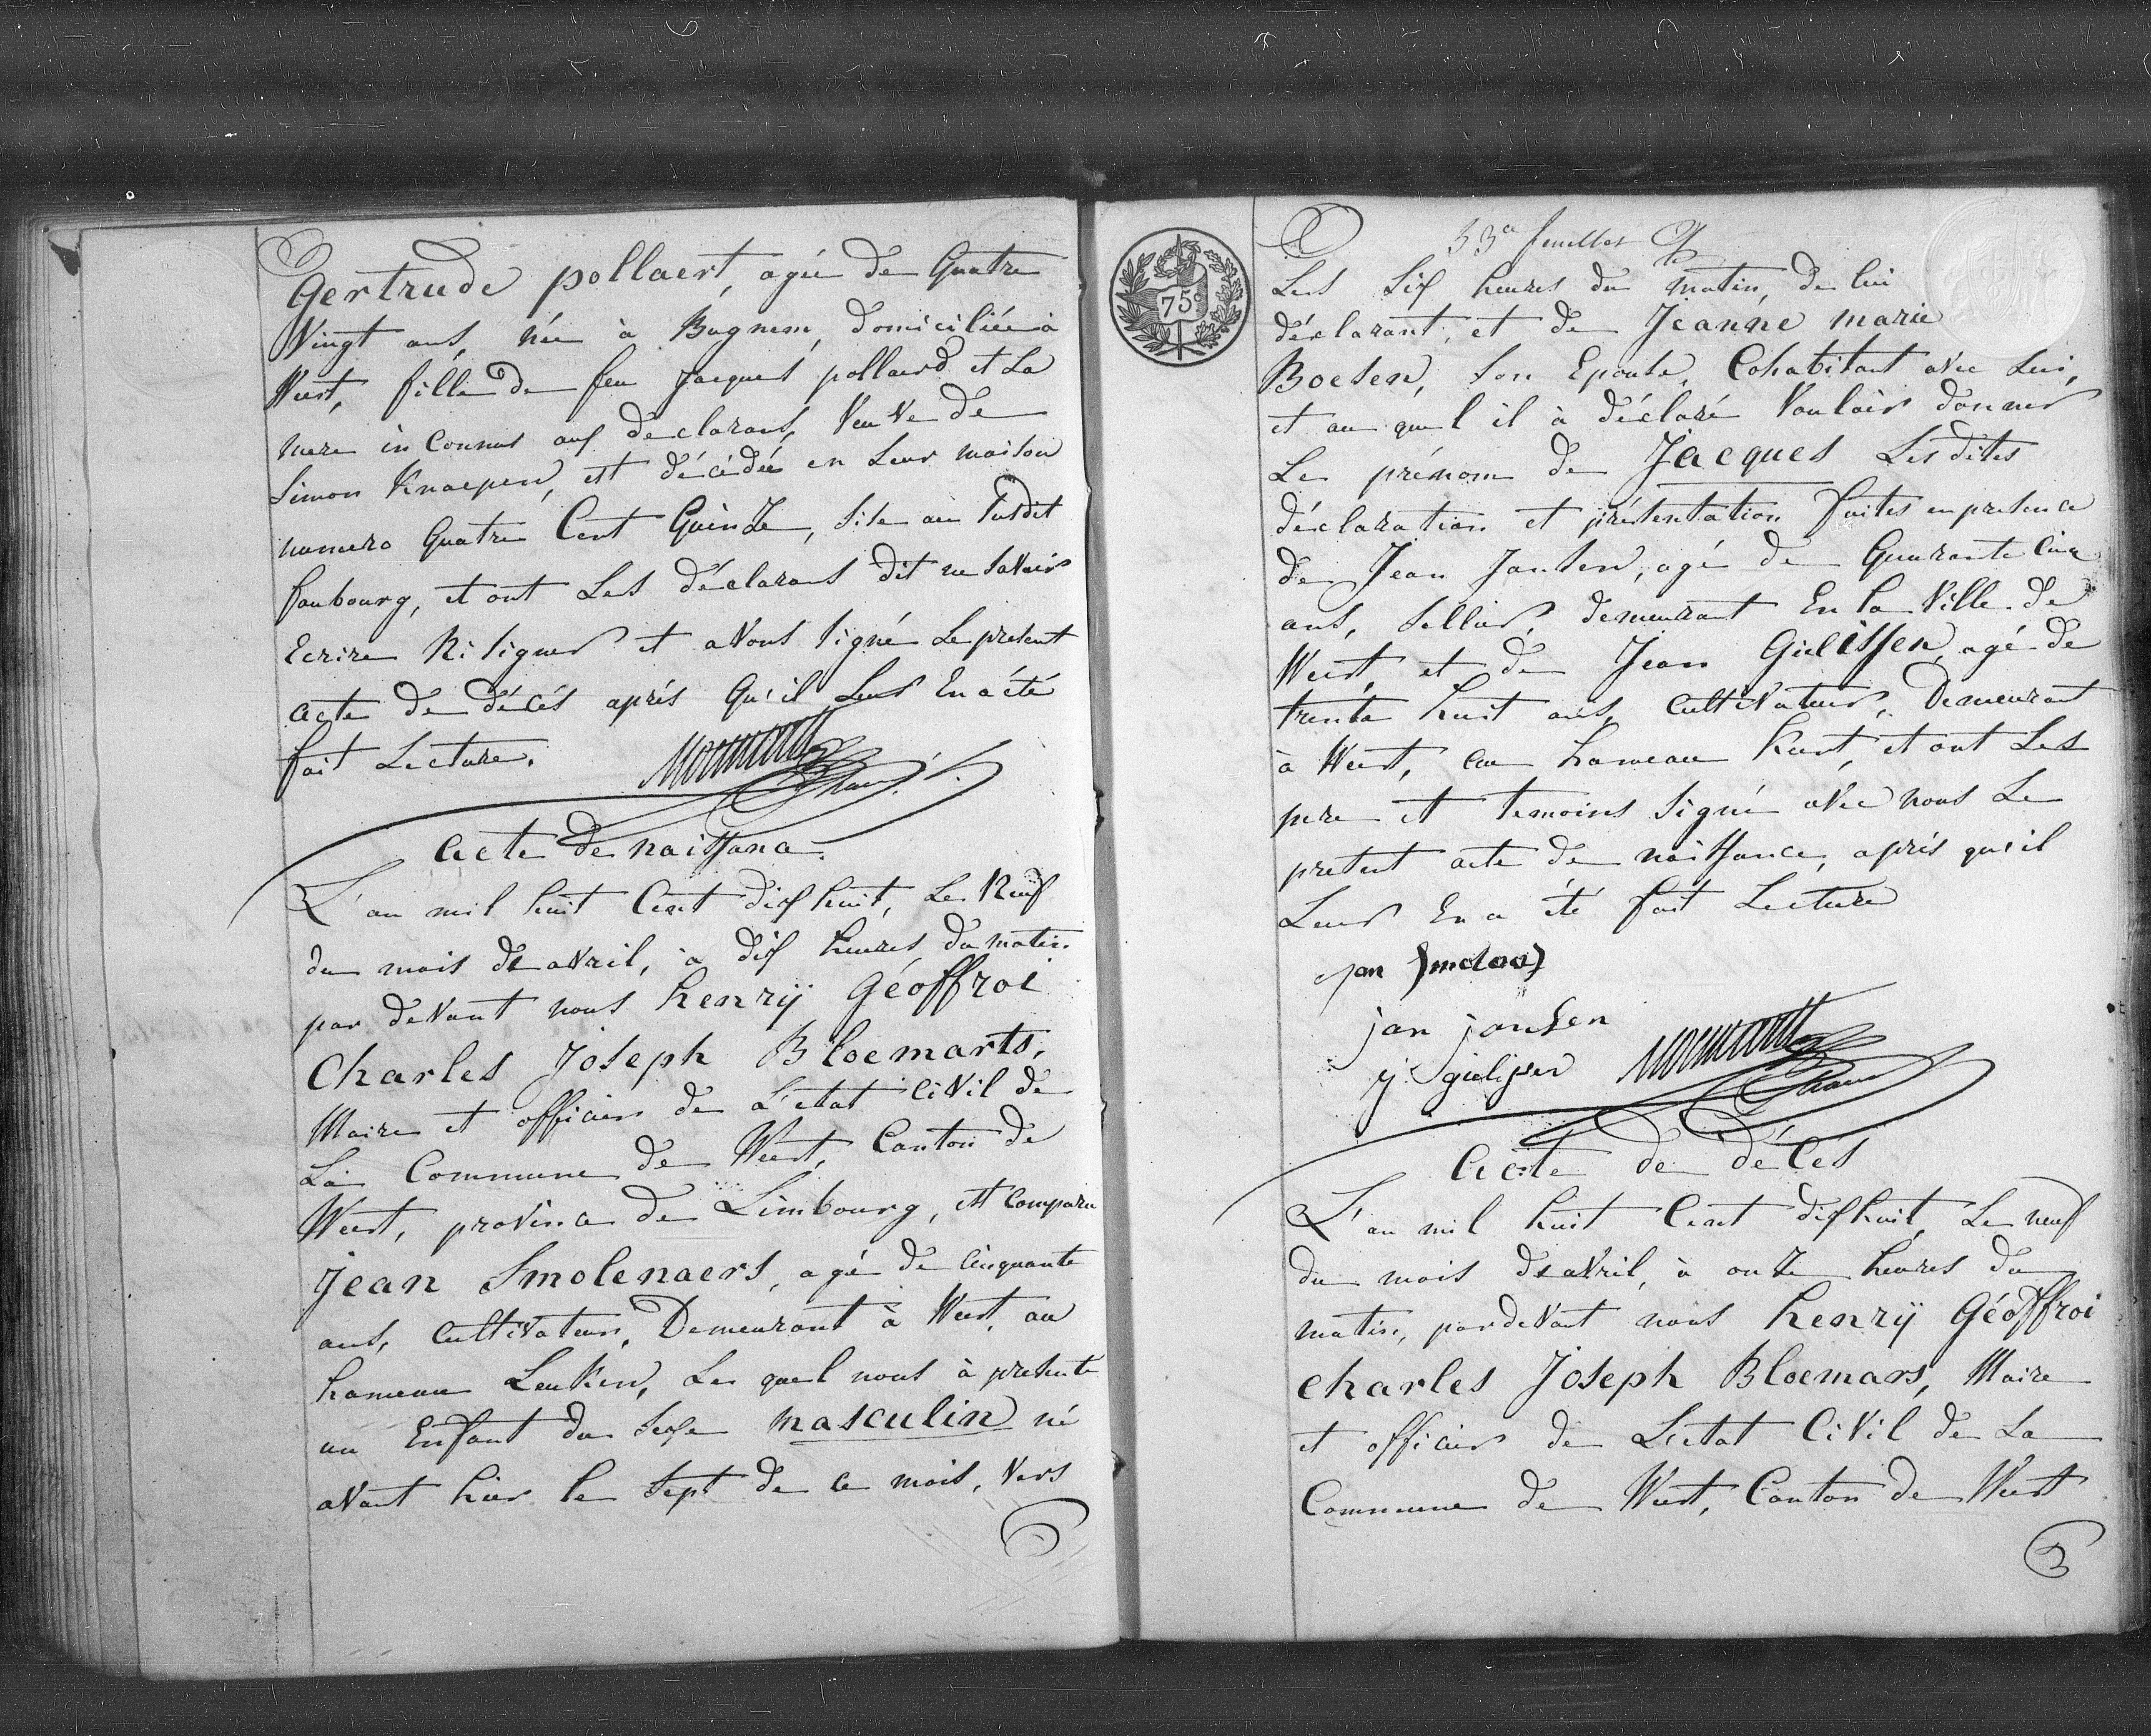 Gertrude pollaert, agée de Quatre
Vingt ans, née à Bugnem, domiciliée à
Weert, fille de feu Jacques pollaerd et La
mere in Connus aux declarans, Veuve de
Simon Knaepen, est décédée en Leur maison
numero Quatre Cent Quinze, Sise au Susdit
faubourg, et ont Les déclarans dit ne Savoir
Ecrire Ni Signer et avons Signé Le present
acte de décés aprés Qu'il Leur En a été
fait Lecture.
acte de naissance.
L'an mil huit Cent dix huit, Le Neuf
du mois de avril, à dix heures du matin
par devant nous henrÿ Géoffroi
Charles Joseph Bloemarts,
Maire et officier de L'etat Civil de
La Commune de Weert, Canton de
Weert, province de Limbourg, est Comparu
Jean Smolenaers, agé de Cinquante
ans, Cultivateur, Demeurant à Weert, au
hameau Leuken, Le quel nous à presenté
un Enfant du Sexe masculin né
avant hier le Sept de ce mois, Vers
33e feuillet
75c
Les Six heures du matin, de lui
déclarant, et de Jeanne marie
Boesen, Son Epouse, Cohabitant avec Lui,
et au quel il à déclaré Vouloir donner
Le prénom de Jacques Les dites
déclaration et présentation faites en presence
de Jean Jansen, agé de Quarante Cinq
ans, Sellier, demeurant En La Ville de
Weert, et de Jean Gielissen, agé de
trente huit ans, Cultivateur, Demeurant
à Weert, au hameau Keent, et ont Les
pere et temoins Signé avec nous Le
present acte de naissance, aprés qu'il
Leur En a été fait Lecture
jan
jan jansen
j gielissen
acte de déCés
L'an mil huit Cent dix huit, Le neuf
du mois de avril, à onze heures du
matin, pardevant nous henrÿ Géoffroi
Charles Joseph Bloemars, Maire
et officier de L'etat Civil de La
Commune de Weert, Canton de Weert